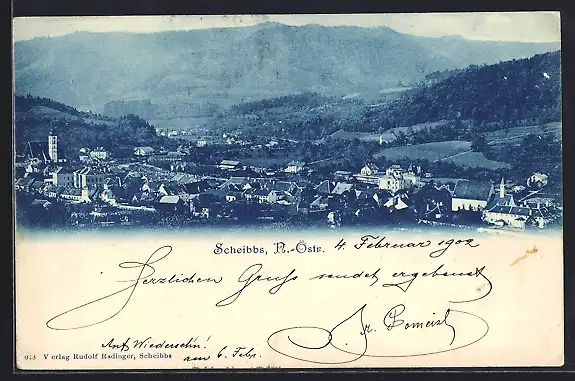 Scheibbs, N.-Östr. 4. Februar 1902
Herzlichen Gruss sendet ergebenst
Fr. Pomeisl
Auf Wiedersehn!
am 6. Feb.
073 Verlag Rudolf Radinger, Scheibbs